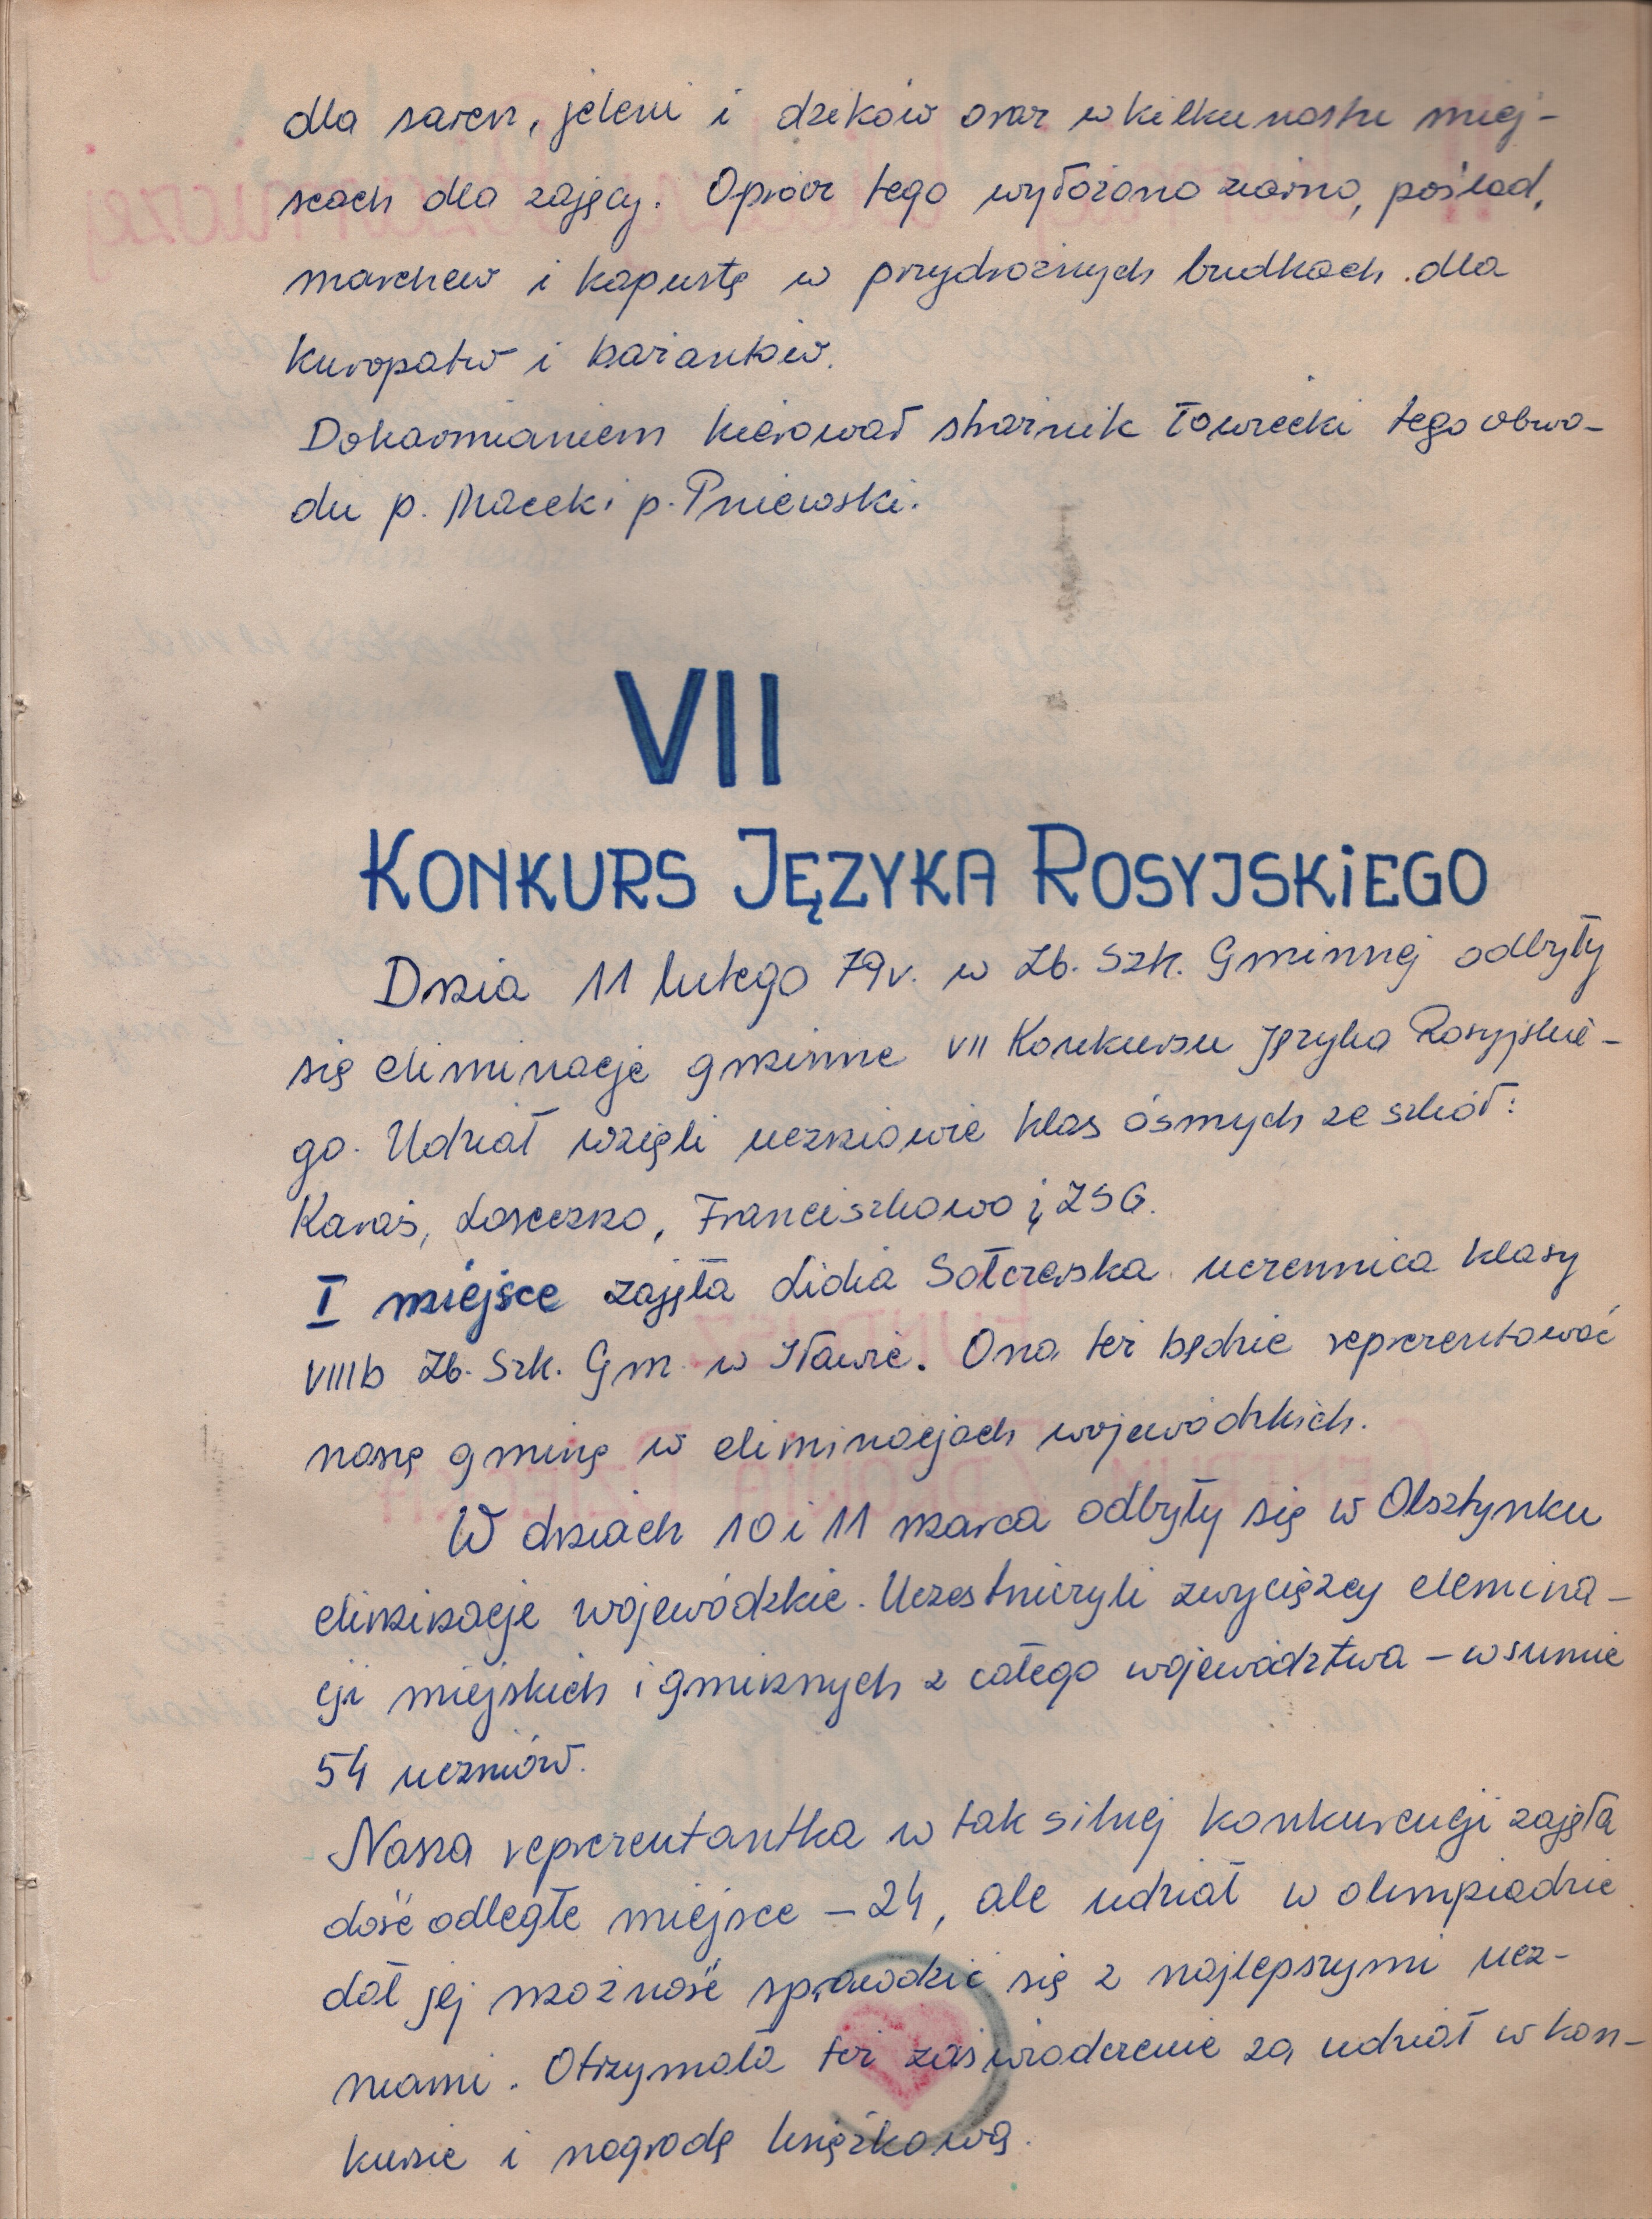 dla saren, jeleni i dzików oraz w kilkunastu miej-
scach dla zajęcy. Oprócz tego wyłożono ziarno, poślad,
marchew i kapustę w przydrożnych budkach dla
kuropatw i bażantów.
Dokarmianiem kierował strażnik łowiecki tego obwo-
du p. Macek i p. Pniewski.
VII
KONKURS JĘZYKA ROSYJSKIEGO
Dnia 11 lutego 79r. w Zb. Szk. Gminnej odbyły
się eliminacje gminne VII Konkursu Języka Rosyjskie-
go. Udział wzięli uczniowie klas ósmych ze szkół:
Karaś, Laseczno, Franciszkowo i ZSG.
I miejsce zajęła Lidia Sołczewska uczennica klasy
VIIIb Zb. Szk. Gm. w Iławie. Ona też będzie reprezentować
naszę gminę w eliminacjach wojewódzkich.
W dniach 10 i 11 marca odbyły się w Olsztynku
eliminacje wojewódzkie. Uczestniczyli zwycięzcy elemina-
cji miejskich i gminnych z całego województwa – w sumie
54 uczniów.
Nasza reprezentantka w tak silnej konkurencji zajęła
dość odległe miejsce – 24, ale udział w olimpiadzie
dał jej możność sprawdzić się z najlepszymi ucz-
niami. Otrzymała też zaświadczenie za udział w kon-
kursie i nagrodę książkową.